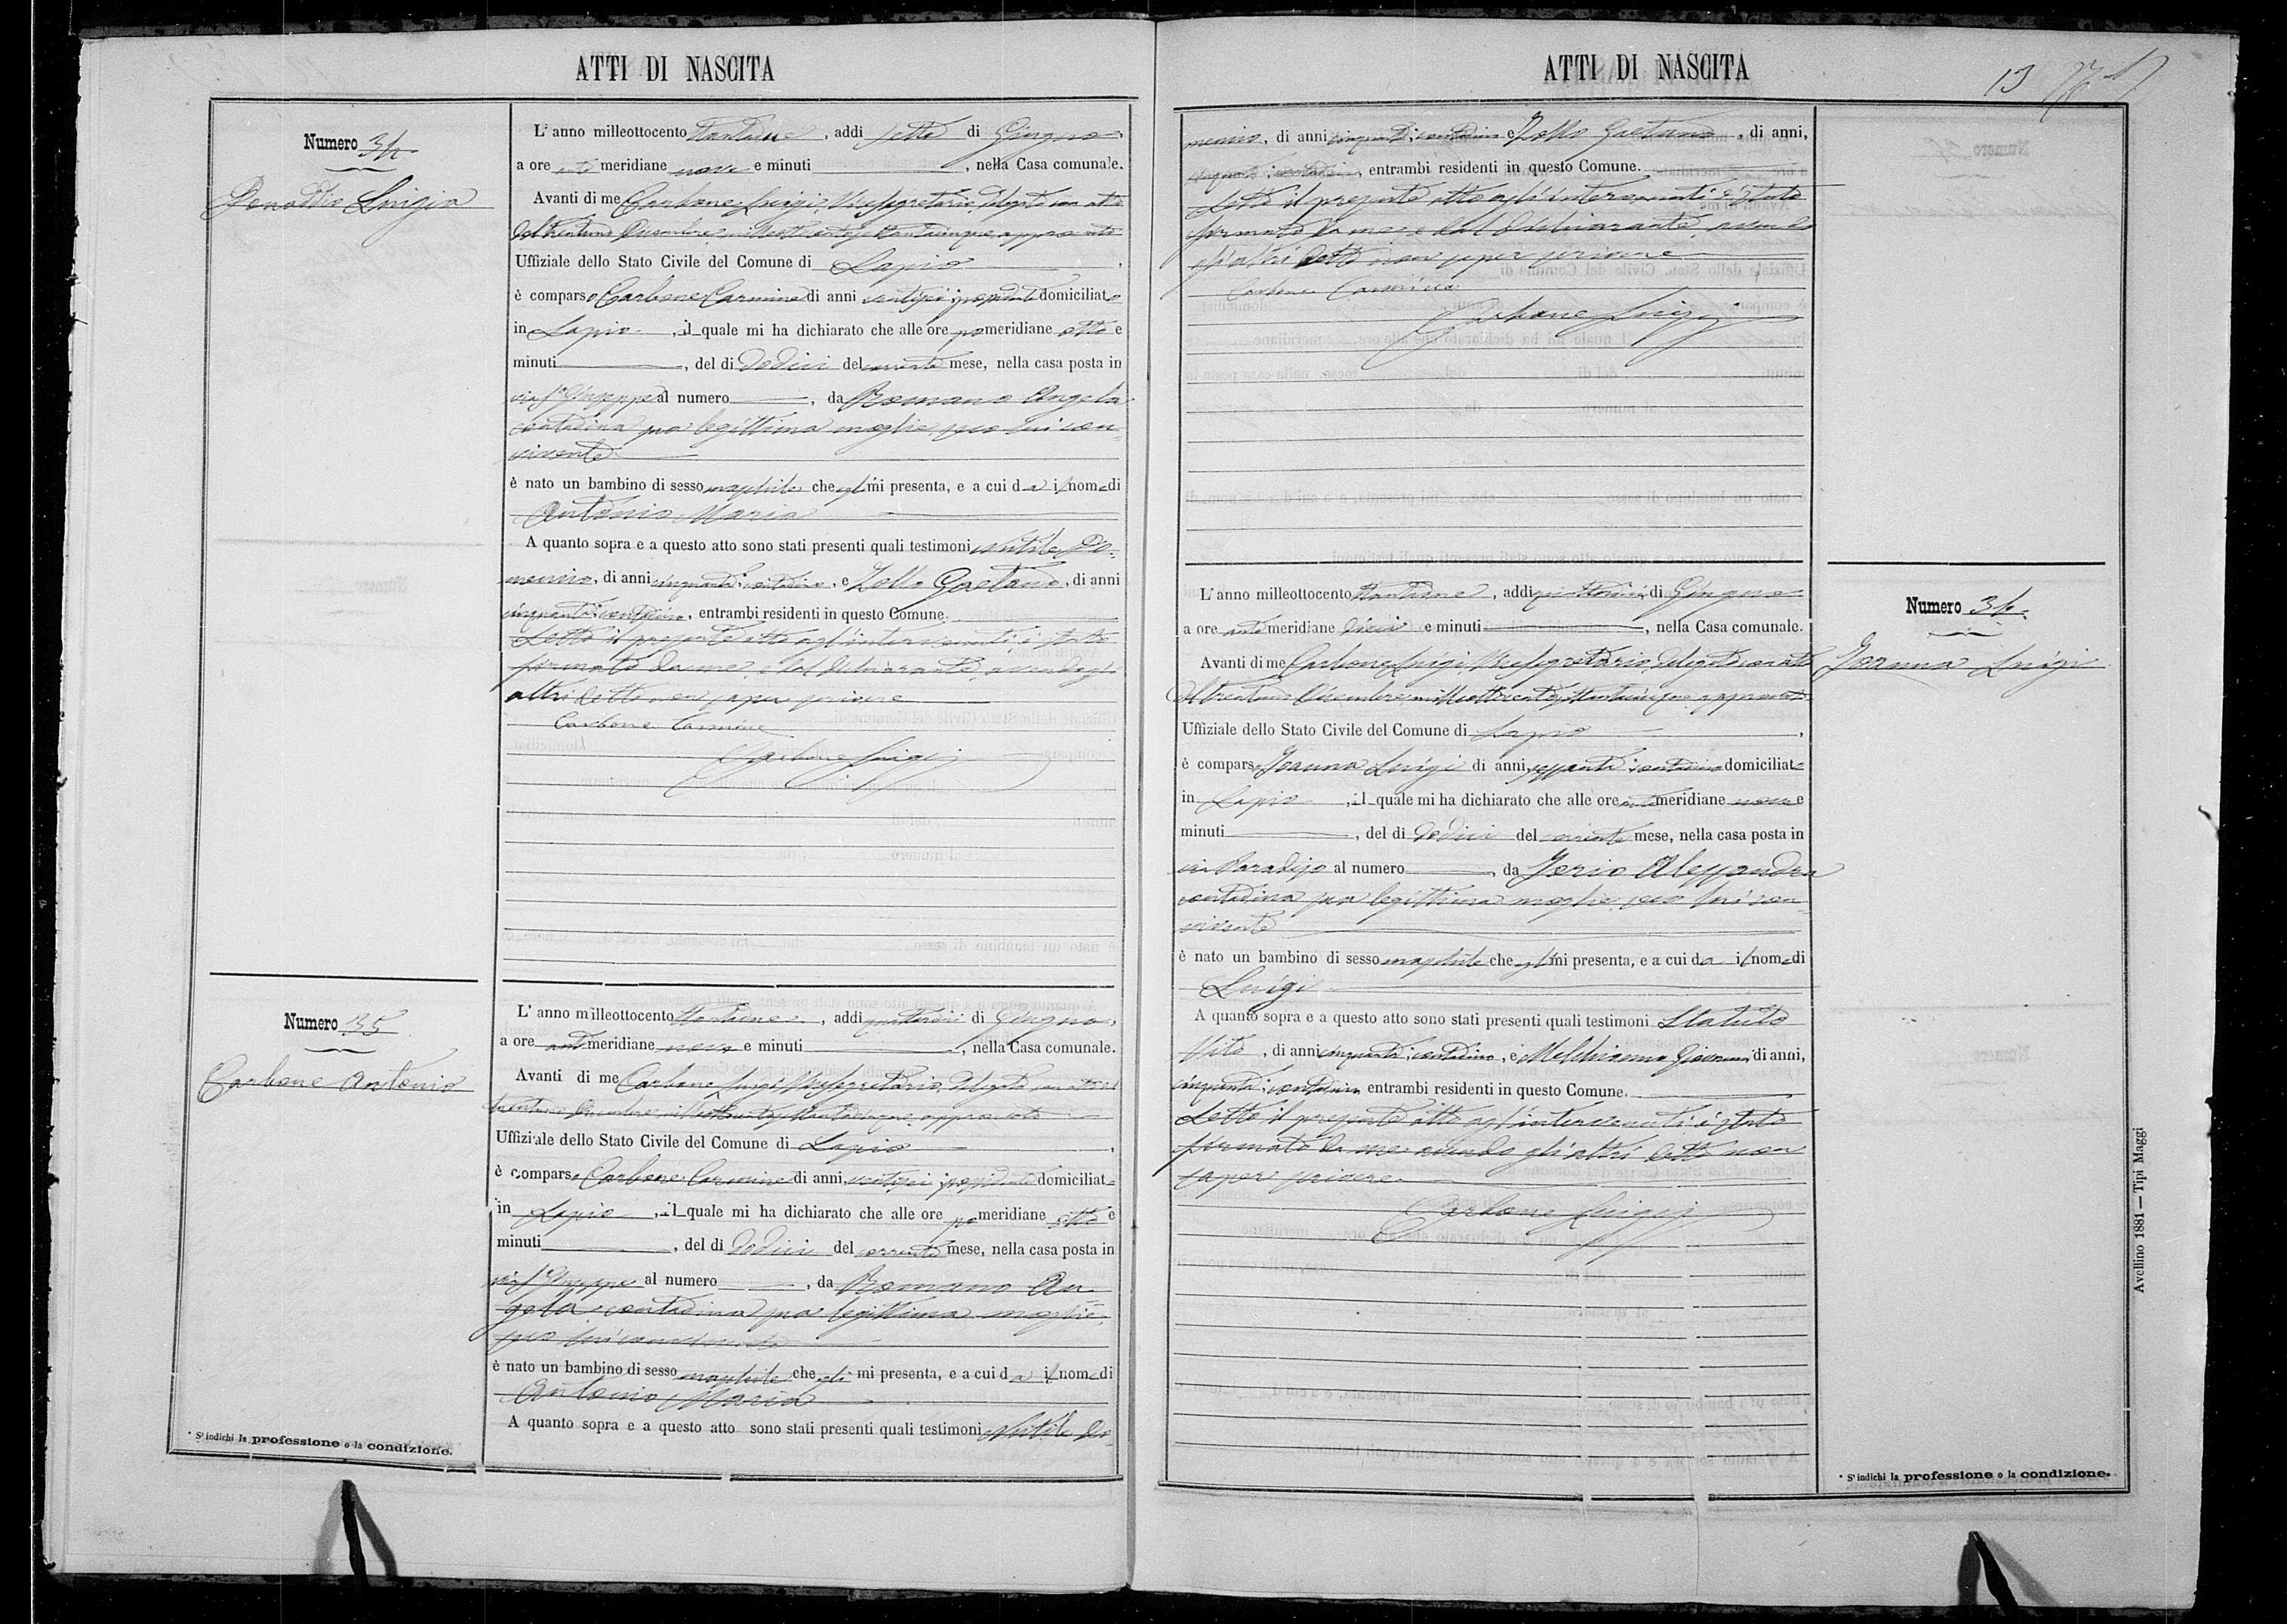 ATTI DI NASCITA
Numero 34
Penaddio Luigia
L'anno milleottocento ottantuno, addi sette di Giugno,
a ore ante meridiane nove e minuti, nella Casa comunale.
Avanti di me Carbone Luigi, Vicesegretario, delegato con atto
del trentuno Dicembre milleottocentosettantacinque, approvato
Uffiziale dello Stato Civile del Comune di Lapio,
è comparso Carbone Carmine di anni ventisei possidente domiciliato
in Lapio, il quale mi ha dichiarato che alle ore pomeridiane otto e
minuti, del di dodici del corrente mese, nella casa posta in
via S. Giuseppe al numero, da Romano Angela
contadina sua legittima moglie, seco lui con-
vivente
è nato un bambino di sesso maschile che egli mi presenta, e a cui da il nome di
Antonio Maria
A quanto sopra e a questo atto sono stati presenti quali testimoni Do-
menico, di anni cinquanta, contadino, e Zollo Gaetano, di anni
cinquanta, contadino, entrambi residenti in questo Comune.
Letto il presente atto agl'intervenuti, è stato
firmato da me, e dal dichiarante, avendo gli
altri detto non saper scrivere
Carbone Carmine
Carbone Luigi
Numero 35
Carbone Antonio
L'anno milleottocento ottantuno, addi quattordici di Giugno,
a ore antimeridiane nove e minuti, nella Casa comunale.
Avanti di me Carbone Luigi, Vicesegretario, delegato con atto del
trentuno Dicembre milleottocentosettantacinque, approvato
Uffiziale dello Stato Civile del Comune di Lapio,
è comparso Carbone Carmine di anni ventisei possidente domiciliato
in Lapio, il quale mi ha dichiarato che alle ore pomeridiane otto e
minuti, del di dodici del corrente mese, nella casa posta in
via S. Giuseppe al numero, da Romano An-
gela, contadina sua legittima moglie,
seco lui convivente
è nato un bambino di sesso maschile che egli mi presenta, e a cui da il nome di
Antonio Maria
A quanto sopra e a questo atto sono stati presenti quali testimoni Do-
* S'indichi la professione o la condizione.
ATTI DI NASCITA
13
menico, di anni cinquanta, contadino e Zollo Gaetano, di anni,
cinquanta, contadino, entrambi residenti in questo Comune.
Letto il presente atto agl'intervenuti è stato
firmato da me e dal dichiarante, avendo
gli altri detto non saper scrivere
Carbone Carmine
Carbone Luigi
Numero 36
Ioanna Luigi
L'anno milleottocento ottantuno, addi quattordici di Giugno
a ore ante meridiane dieci e minuti, nella Casa comunale.
Avanti di me Carbone Luigi, Vicesegretario, delegato con atto
del trentuno Dicembre milleottocentosettantacinque, approvato
Uffiziale dello Stato Civile del Comune di Lapio,
è comparso Ioanna Luigi di anni sessanta, contadino domiciliato
in Lapio, il quale mi ha dichiarato che alle ore antimeridiane nove e
minuti, del di dodici del corrente mese, nella casa posta in
via Paradiso al numero, da Iorio Alessandra
contadina sua legittima moglie, seco lui con-
vivente
è nato un bambino di sesso maschile che egli mi presenta, e a cui da il nome di
Luigi
A quanto sopra e a questo atto sono stati presenti quali testimoni Statuto
Vito, di anni cinquanta, contadino, e Melchionna Giovanni di anni,
cinquanta, contadino, entrambi residenti in questo Comune.
Letto il presente atto agl'intervenuti, è stato
firmato da me avendo gli altri detto non
saper scrivere
Carbone Luigi
* S'indichi la professione o la condizione.
Avellino 1881 — Tipi Maggi